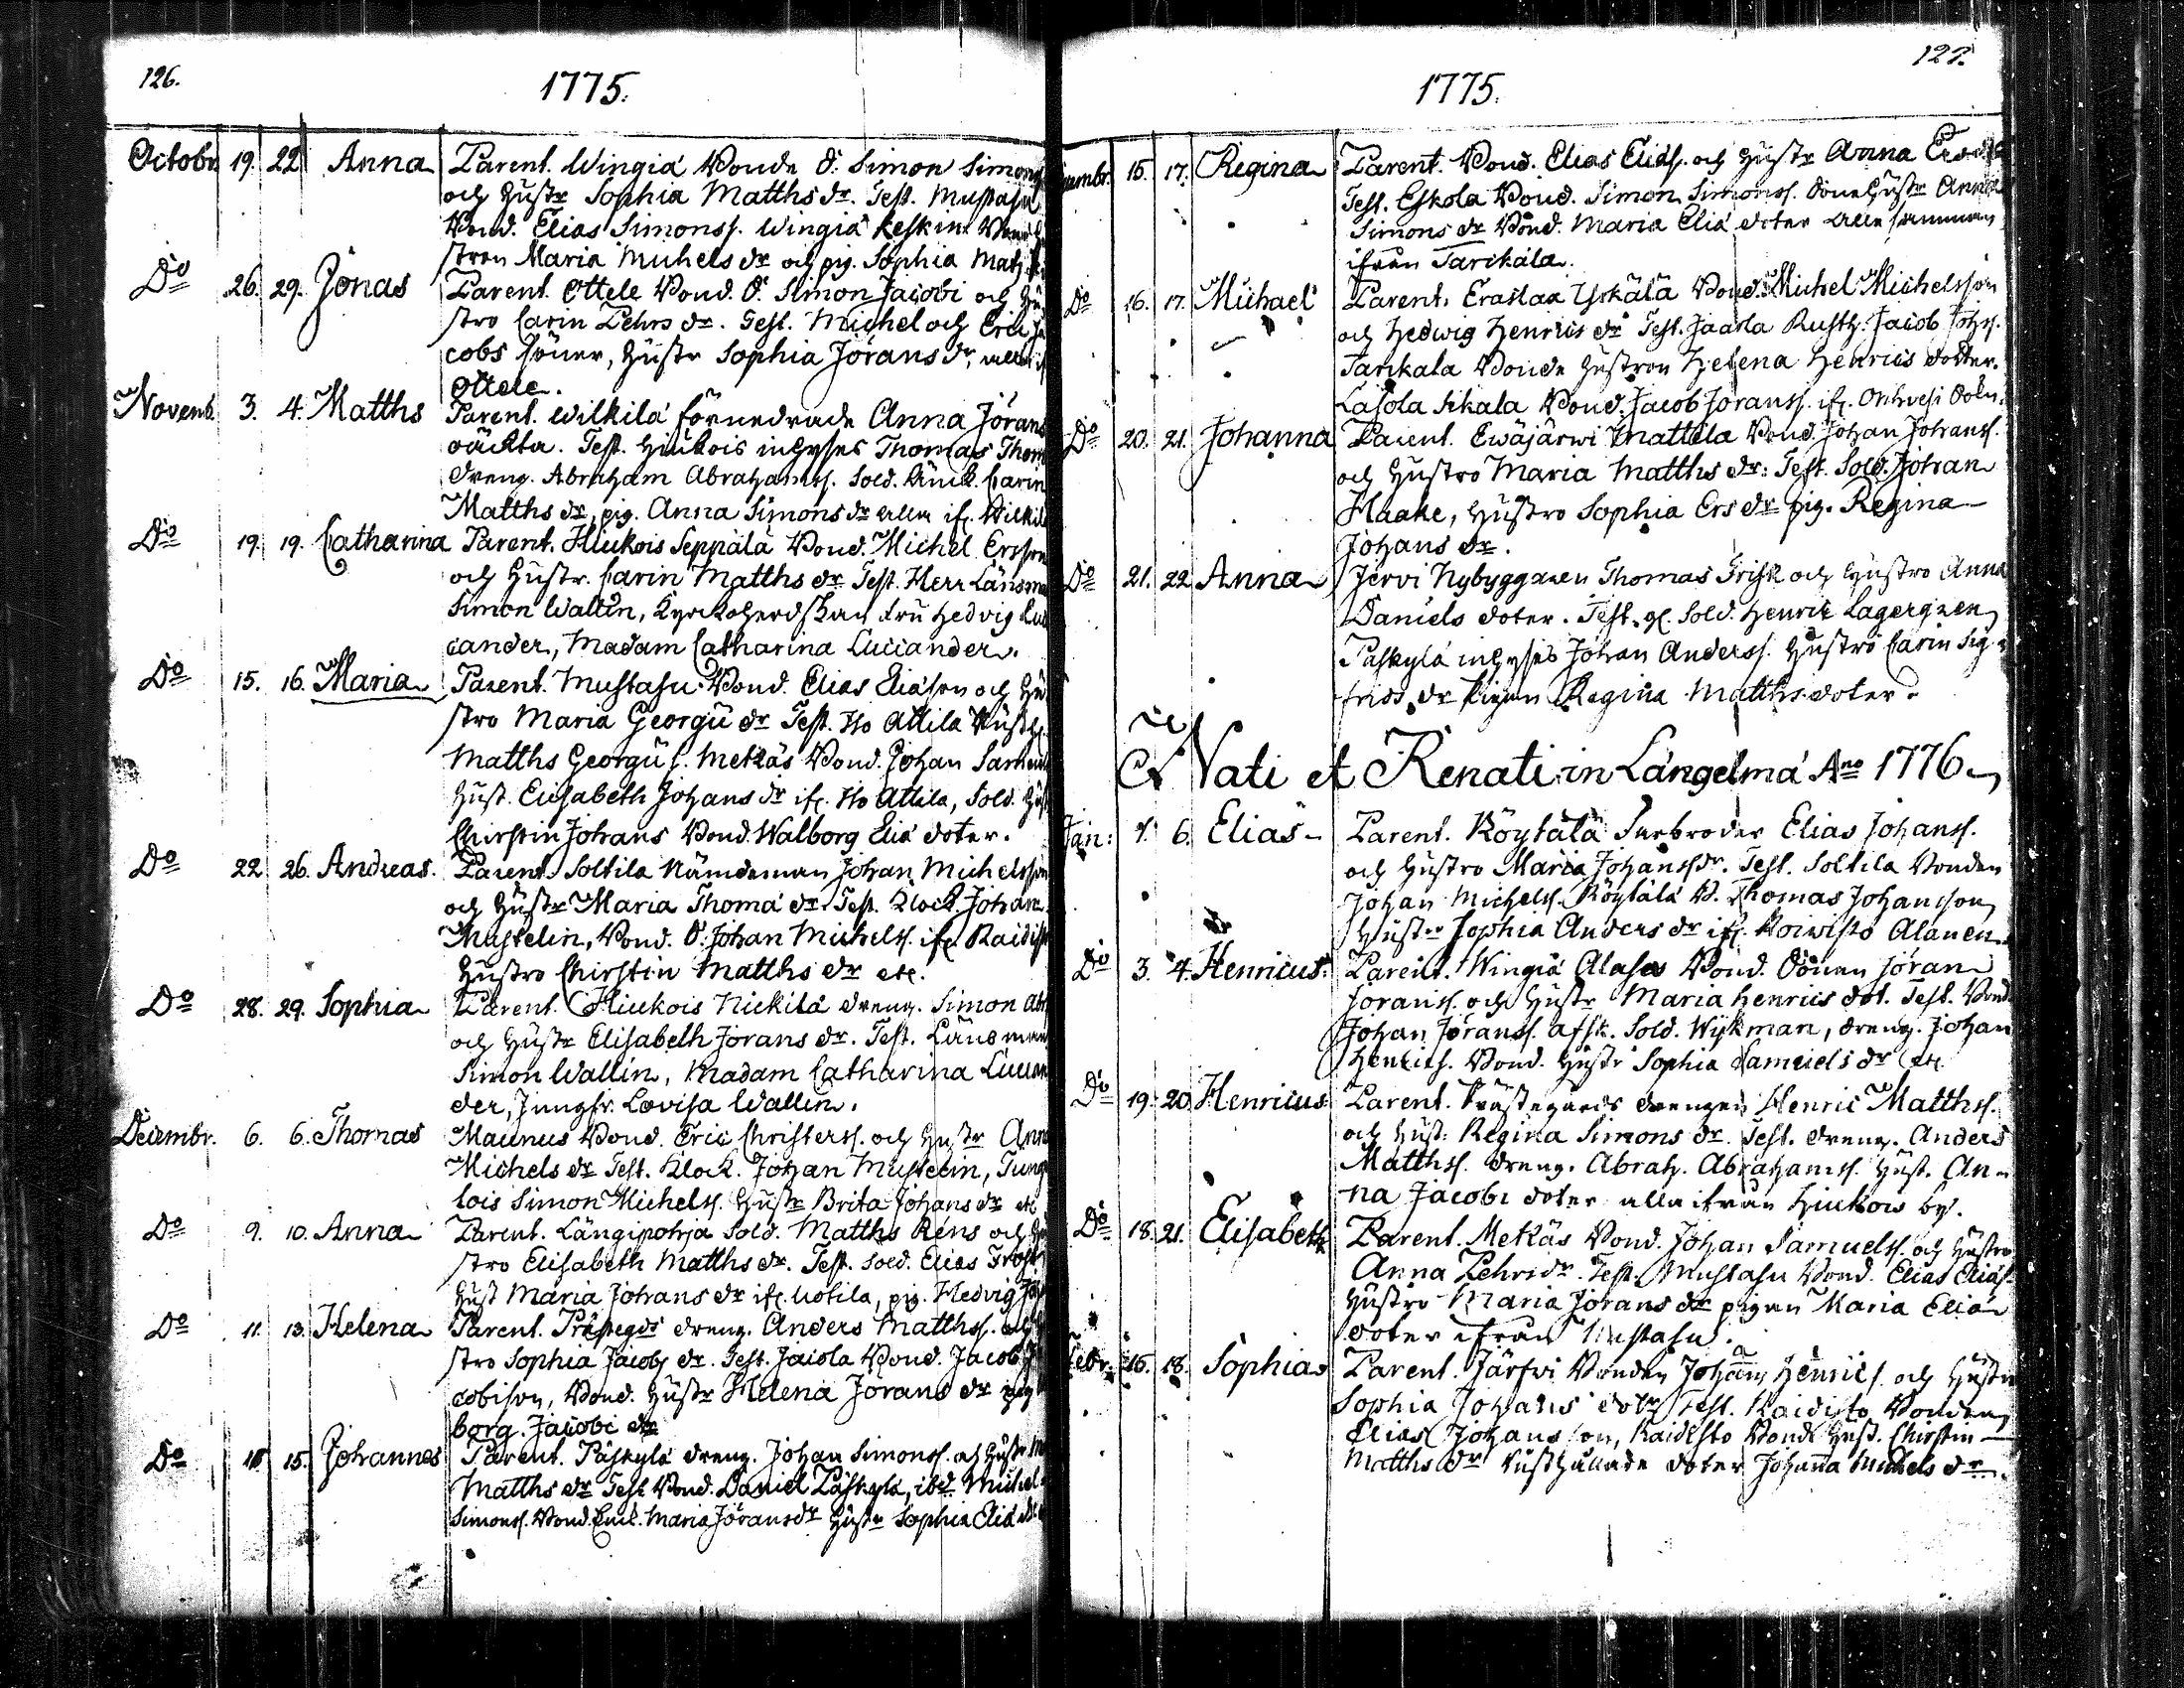 126.
1775.
Octobr. 19. 22 Anna Parent. Wingiä Bonde S. Simon Simons
och Hustr Sophia Matths dr. Test. Mustasu
Bond. Elias Simonss. Wingiä Keskine
stron Maria Michels dr och pig. Sophia
Do 26. 29. Jonas Parent. Ottele Bond. S. Simon Jacobi och Hu
stro Carin Pehrs dr. Test. Michel och Eric Ja
cobs söner, Hustr Sophia Jörans dr,
Ottele.
Novemb. 3. 4. Matths Parent. Wilkilä förnedrade Anna Jörans
oäckta. Test. Hiukois inhyses Thomas Thom
dreng. Abraham Abrahamss. Sold. Änck. Carin
Matths dr, pig. Anna Simons dr alla if. Wilkilä
Do 19. 19. Catharina Parent. Hiukois Seppälä Bond. Michel Ersson
och Hustr. Carin Matths dr Test. Herr Länsma
Simon Wallin, Kyrkoherdskan Fru Hedvig Luc
ander, Madam Catharina Lucander.
Do 15. 16. Maria Parent. Mustasu Bond. Elias Eliäson och Hu
stro Maria Georgii dr Test. Ho Attila Rusth.
Matths Georgii s. Metkäs Bond. Johan Samuel
Hust. Elisabeth Johans dr if. Ho Attila, Sold. Hust
Chirstin Johans Bond. Walborg Eliä doter.
Do 22 26. Andreas. Parent. Soltila Nämdeman Johan Michelsson
och Hustr Maria Thomä dr. Test. Klock. Johan
Mustelin, Bond. S. Johan Michelss. if. Raidist
Hustro Chirstin Matths dr etc.
Do 28. 29. Sophia Parent. Hiukois Nickilä dreng. Simon Abr
och Hustr Elisabeth Jörans dr. Test. Länsman
Simon Wallin, Madam Catharina Lucan
der, Jungfr. Lovisa Wallin.
Decembr. 6. 6. Thomas Maunus Bond. Eric Christerss. och Hustr Anna
Michels dr Test. Klock. Johan Mustelin, Jung
lois Simon Michelss. Hustr Brita Johans dr etc
Do 9. 10. Anna Parent. Längipohja Sold. Matths Rens och Hu
stro Elisabeth Matths dr. Test. Sold. Elias Frost
Hust Maria Johans dr if. Uotila, pig. Hedvig Joh
Do 11. 13. Helena Parent. Prästegds dreng. Anders Matthss. och
stro Sophia Jacobs dr. Test. Jaiola Bond. Jacob Ja
cobison, Bond. Hustr Helena Jörans dr pig
borg. Jacobi dr
Do 15. Johannes Parent. Päskylä dreng. Johan Simonss. och Hustr M
Matths dr Test Bond. Daniel Päskylä, ibd. Michel
Simonss. Bond. Enck. Maria Jörans dr Hustr Sophia Eliä
127.
1775.
cembr. 15. 17. Regina Parent. Bond. Elias Eliäs. och Hustr Anna
Test. Eskola Bond. Simon Simonss. Hustr Anna
Simons dr Bond. Maria Eliä doter alle samman
ifrån Tarikala.
Do 16. 17. Michael Parent. Eraslax Yskälä Bond. Michel Michelsson
och Hedwig Henrics dr Test. Jaarla Rusth. Jacob Johss.
Tarikala Bonde Hustron Helena Henrics dotter.
Lasola Sikala Bond. Jacob Jöranss. if.
Do 20. 21. Johanna Parent. Ewäjärwi Mattila Bond. Johan Johanss.
och Hustro Maria Matths dr: Test. Sold. Johan
Haake, Hustro Sophia Ers dr pig. Regina
Johans dr.
Do 21. 22. Anna Jervi Nybyggaren Thomas Frisk och Hustro Anna
Daniels doter. Test. gl. Sold. Henric Lagergren
Päskylä inhyses Johan Anderss. Hustro Carin Sig
frids dr Pigan Regina Matths doter.
Nati et Renati in Längelmä Ano 1776.
Jan: 1. 6. Elias Parent. Röytälä Johanss.
och Hustro Maria Johanss dr. Test. Soltila Bonden
Johan Michelss. Röytälä B. Thomas Johansson
Hustr Sophia Anders dr if. Koiwisto Alanen.
Do 3. 4. Henricus: Parent. Wingiä Alasa Bond. Sonen Jöran
Jöranss. och Hustr Maria Henrics dot. Test. Bond
Johan Jöranss. afsk. Sold. Wykman, dreng. Johan
Henrics. Bond. Hustr Sophia Samuels dr etc
Do 19. 20. Henricus: Parent. Prästegårds drengen Henric Matthss.
och Hust: Regina Simons dr. Test. dreng. Anders
Matthss. dreng. Abrah. Abrahamss. Hust. An-
na Jacobi doter alla ifrån Hiukois by.
Do 18. 21. Elisabeth Parent. Metkäs Bond. Johan Samuelss. och Hustro
Anna Pehrs dr. Test. Mustasu Bond. Elias Eliäs.
Hustro Maria Jörans dr pigan Maria Eliä
doter ifrån Mustasu.
Febr. 15. 18. Sophia Parent. Järfwi Bonden Johan Henrics. och Hustr
Sophia Johans dotr Test. Raidisto Bonden
Elias Johansson, Raidisto Bond Hust. Chirstin
Matths dr Rusthållade doter Johanna Michels dr.